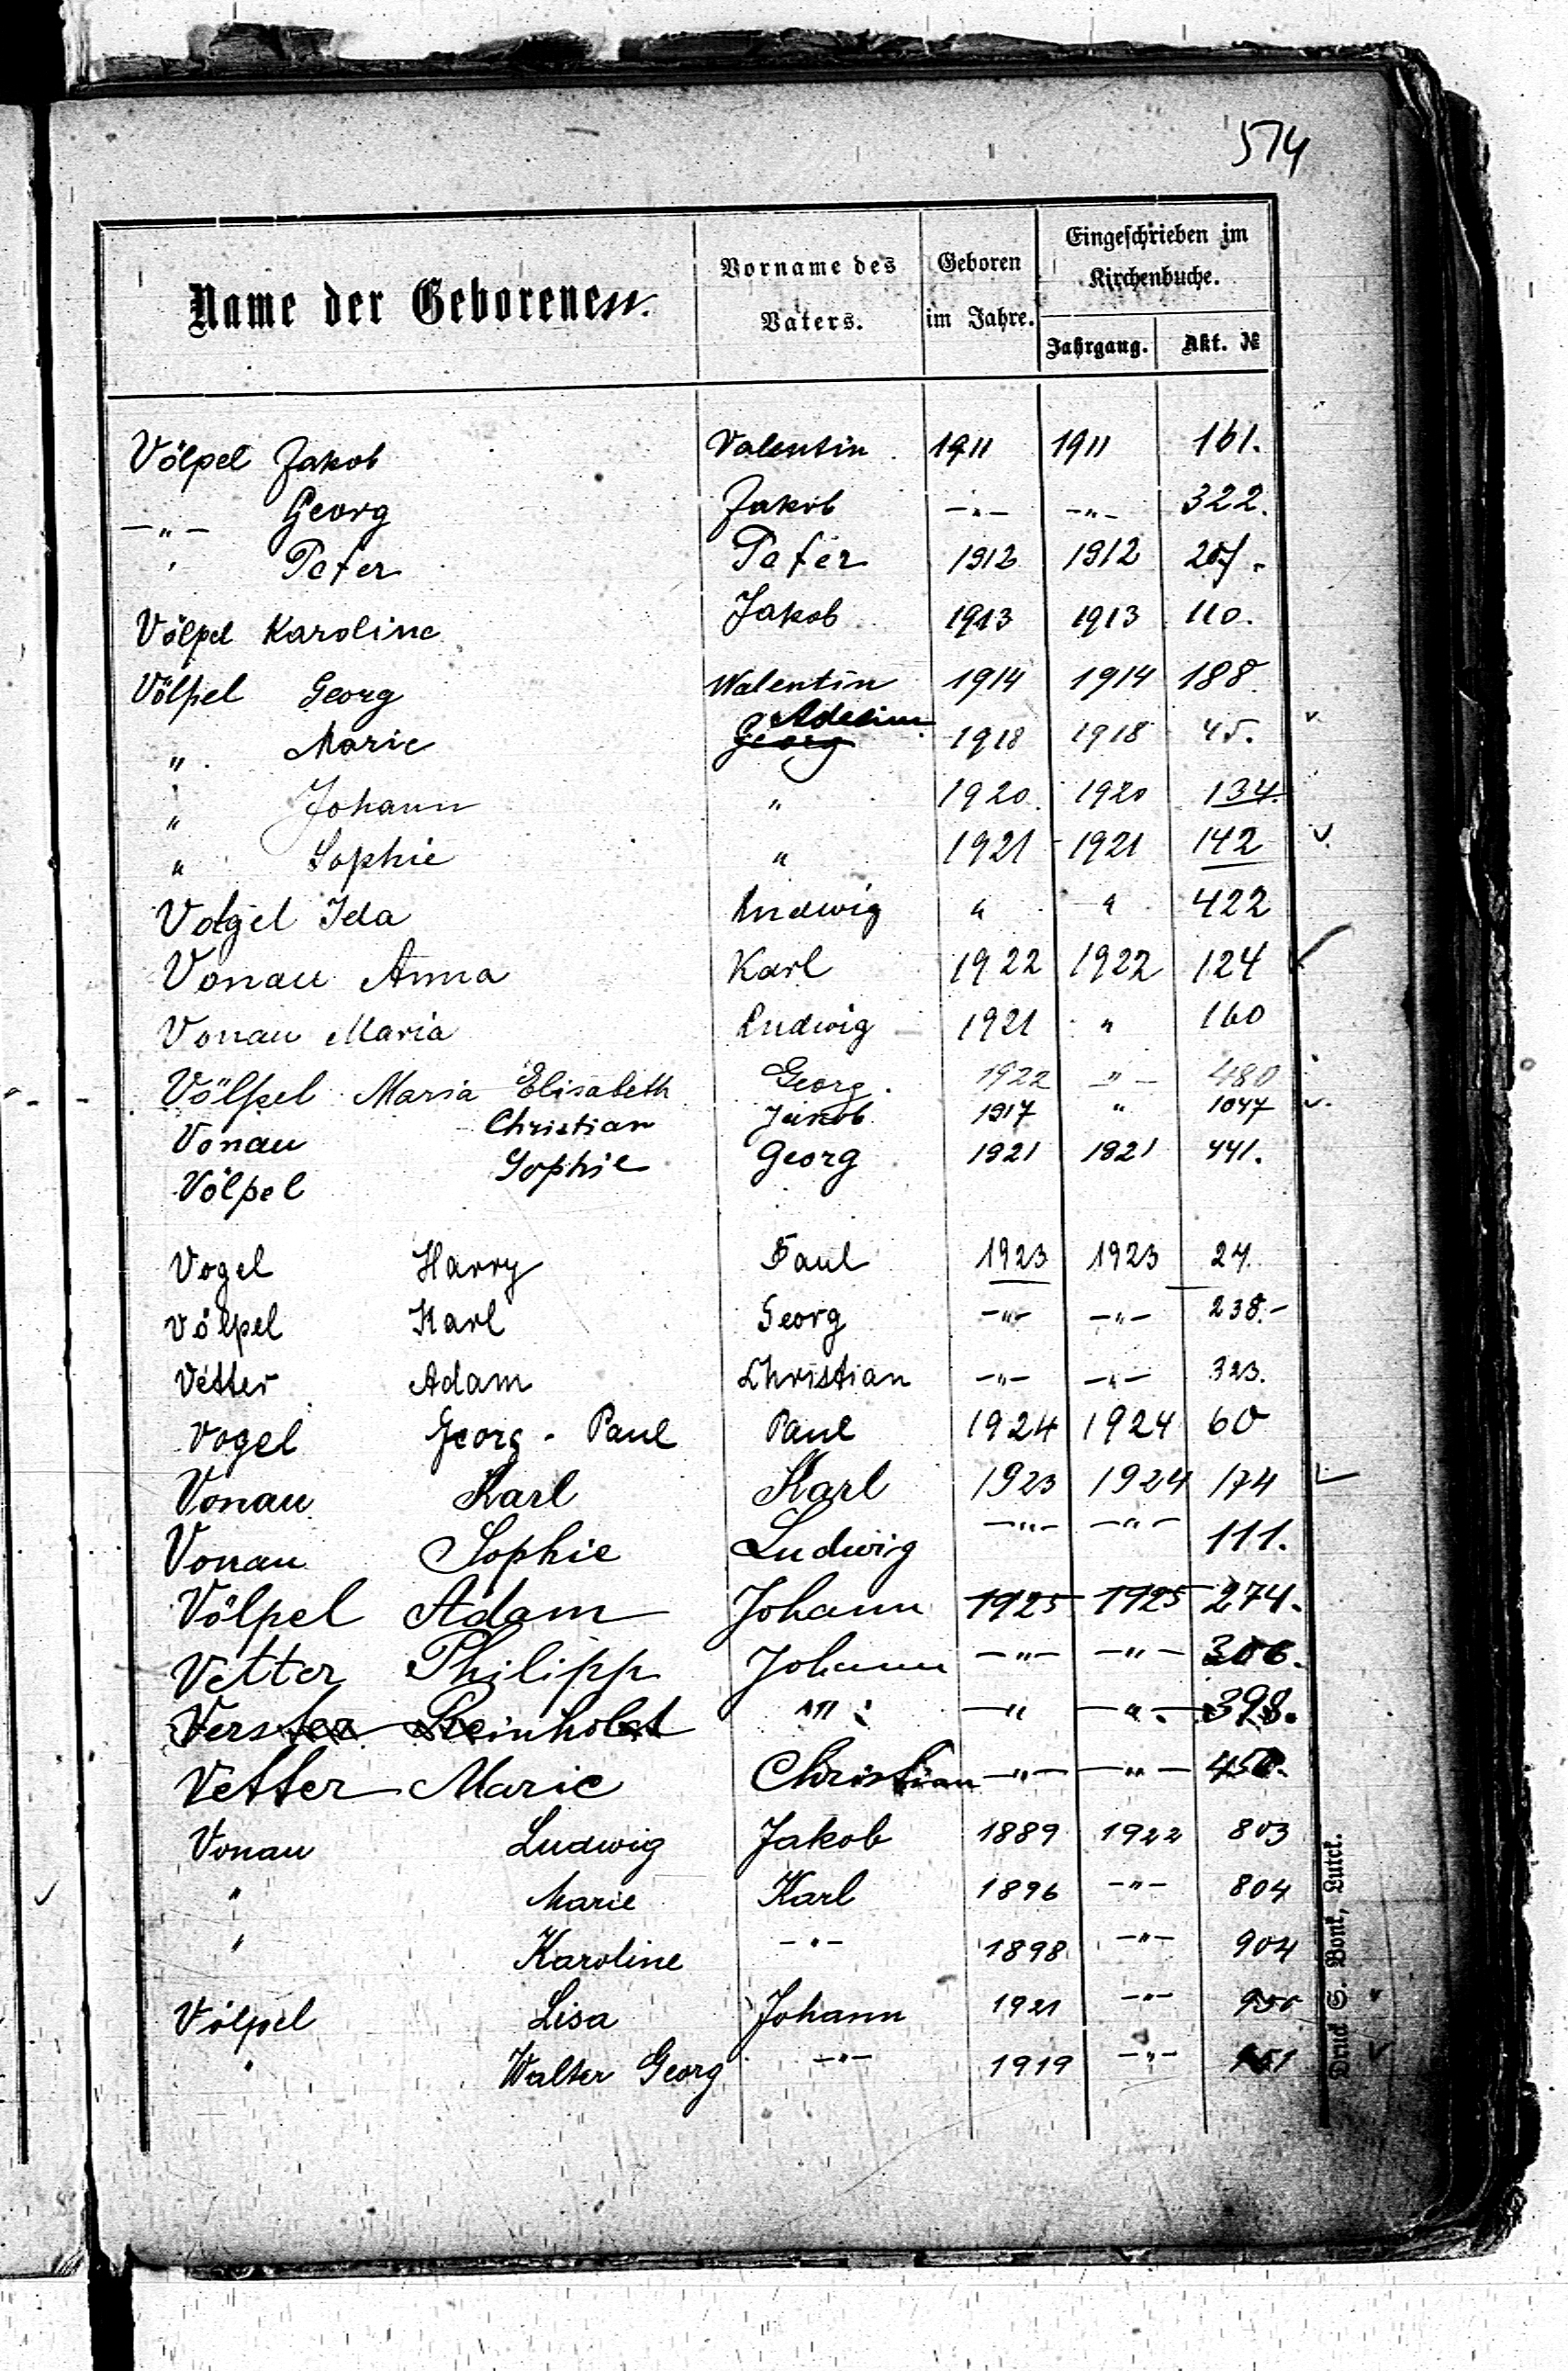 574
Name der Geborenen.
Vorname des Vaters.
Geboren im Jahre.
Eingeschrieben im Kirchenbuche.
Jahrgang. Akt. №
Völpel Jakob Valentin 1911 1911 161.
—"— Georg Jakob —"— —"— 322.
" Peter Peter 1912 1912
Völpel Karoline Jakob 1913 1913 110.
Völpel Georg Walentin 1914 1914 188.
" Marie Georg 1918 1918 45.
" Johann " 1920 1920 134.
" Sophie " 1921 1921 142
Vogel Ida Ludwig " " 422
Vonau Anna Karl 1922 1922 124
Vonau Maria Ludwig 1921 " 160
Völpel Maria Elisabeth Georg. 1922 —"— 480
Vonau Christian Jakob 1917 " 1047
Völpel Sophie Georg 1921 1921 441.
Vogel Harry Paul 1923 1923 24.
Völpel Karl Georg —"— —"— 238.—
Vetter Adam Christian —"— —"— 323.
Vogel Georg - Paul Paul 1924 1924 60
Vonau Karl Karl 1923 1924 174
Vonau Sophie Ludwig —"— —"— 111.
Völpel Adam Johann 1925 1925 274.
Vetter Philipp Johann —"— —"— 306.
Verster Reinholdt —" —"— 398.
Vetter Marie Christian —"— —"— 450.
Vonau Ludwig Jakob 1889 1922 803
" Marie Karl 1896 —"— 804
" Karoline —"— 1898 —"— 904
Völpel Lisa Johann 1921 —"— 950
" Walter Georg —"— 1919 —"—
Druck S. Bonk, Luck.